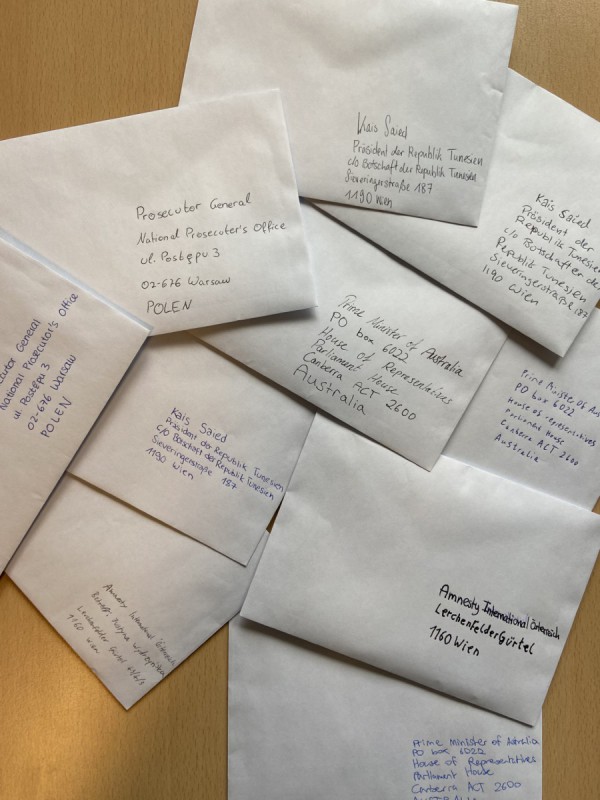 Kais Saied
Präsident der Republik Tunesien
c/o Botschaft der Republik Tunesien
Sieveringerstraße 187
1190 Wien
Prosecutor General
National Prosecutor's Office
ul. Postępu 3
02-676 Warsaw
POLEN
Kais Saied
Präsident der
Republik Tunesien
c/o Botschaft der
Republik Tunesien
Sieveringerstraße 187
1190 Wien
Prime Minister of Australia
PO box 6022
House of Representatives
Parliament House
Canberra ACT 2600
Australia
General
National Prosecutor's Office
ul. Postępu 3
02-676 Warsaw
POLEN
Prime Minister of
PO box 6022
House of representatives
Parliament House
Canberra ACT 2600
Australia
Kais Saied
Präsident der Republik Tunesien
c/o Botschaft der Republik Tunesien
Sieveringerstraße 187
1190 Wien
Amnesty International Österreich
Lerchenfelder Gürtel
1160 Wien
Amnesty International Österreich
Justyna Wydrzyńska
Lerchenfelder Gürtel
1160 Wien
Prime Minister of Australia
PO box 6022
House of Representatives
Parliament House
Canberra ACT 2600
AUSTRALIA